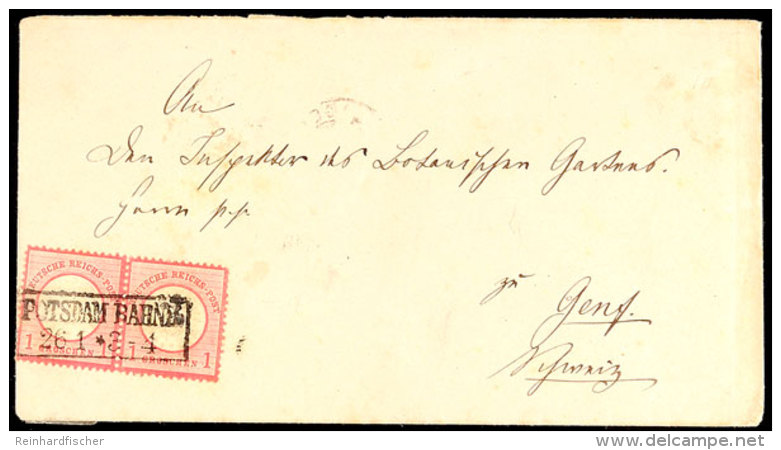 An
Den Inspektor des Botanischen Gartens.
Herrn p.p.
zu
Genf.
Schweiz
DEUTSCHE REICHS-POST
DEUTSCHE REICHS-POST
POTSDAM BAHNH
26 1 * 3-4
1 GROSCHEN 1
1 GROSCHEN 1
Reinhardfischer
delcampe.net